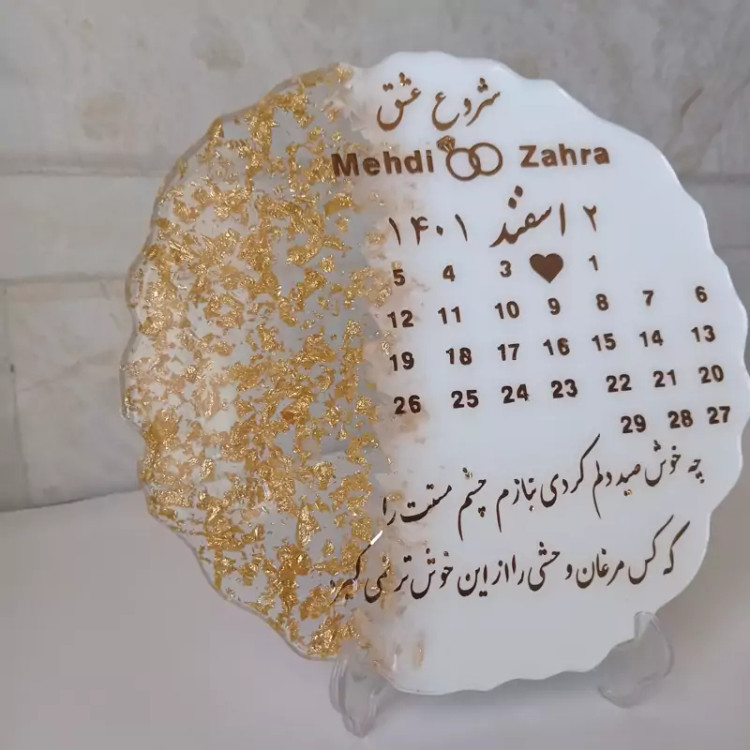 شروع عشق
Mehdi Zahra
۲ اسفند ۱۴۰۱
5 4 3 1
12 11 10 9 8 7 6
19 18 17 16 15 14 13
26 25 24 23 22 21 20
29 28 27
چه خوش صید دلم کردی بنازم چشم مستت را
که کس مرغان وحشی را از این خوش تر نمی گیرد